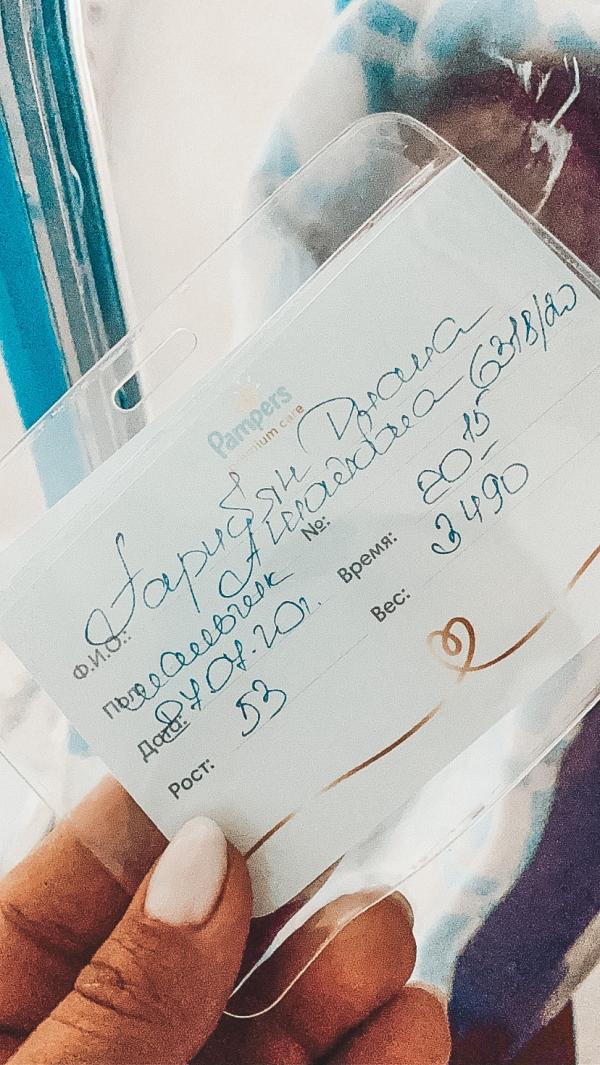 Pampers
premium care
Ф.И.О.: Гарибян Диана
№: 6318/20
Пол: мальчик Время: 20 15
Дата: 07.07.20г. Вес: 3490
Рост: 53